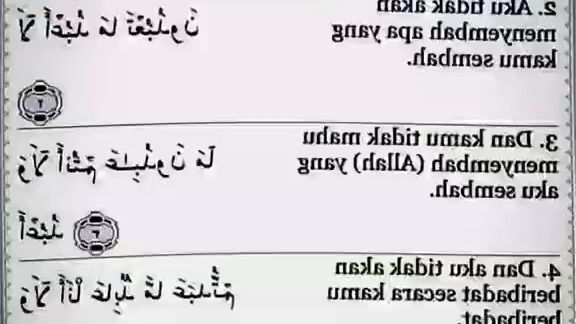 2. Aku tidak akan
menyembah apa yang
kamu sembah.
لَآ أَعْبُدُ مَا تَعْبُدُونَ
٢
3. Dan kamu tidak mahu
menyembah (Allah) yang
aku sembah.
وَلَآ أَنتُمْ عَٰبِدُونَ مَآ
أَعْبُدُ ٣
4. Dan aku tidak akan
beribadat secara kamu
beribadat.
وَلَآ أَنَا۠ عَابِدٌ مَّا عَبَدتُّمْ